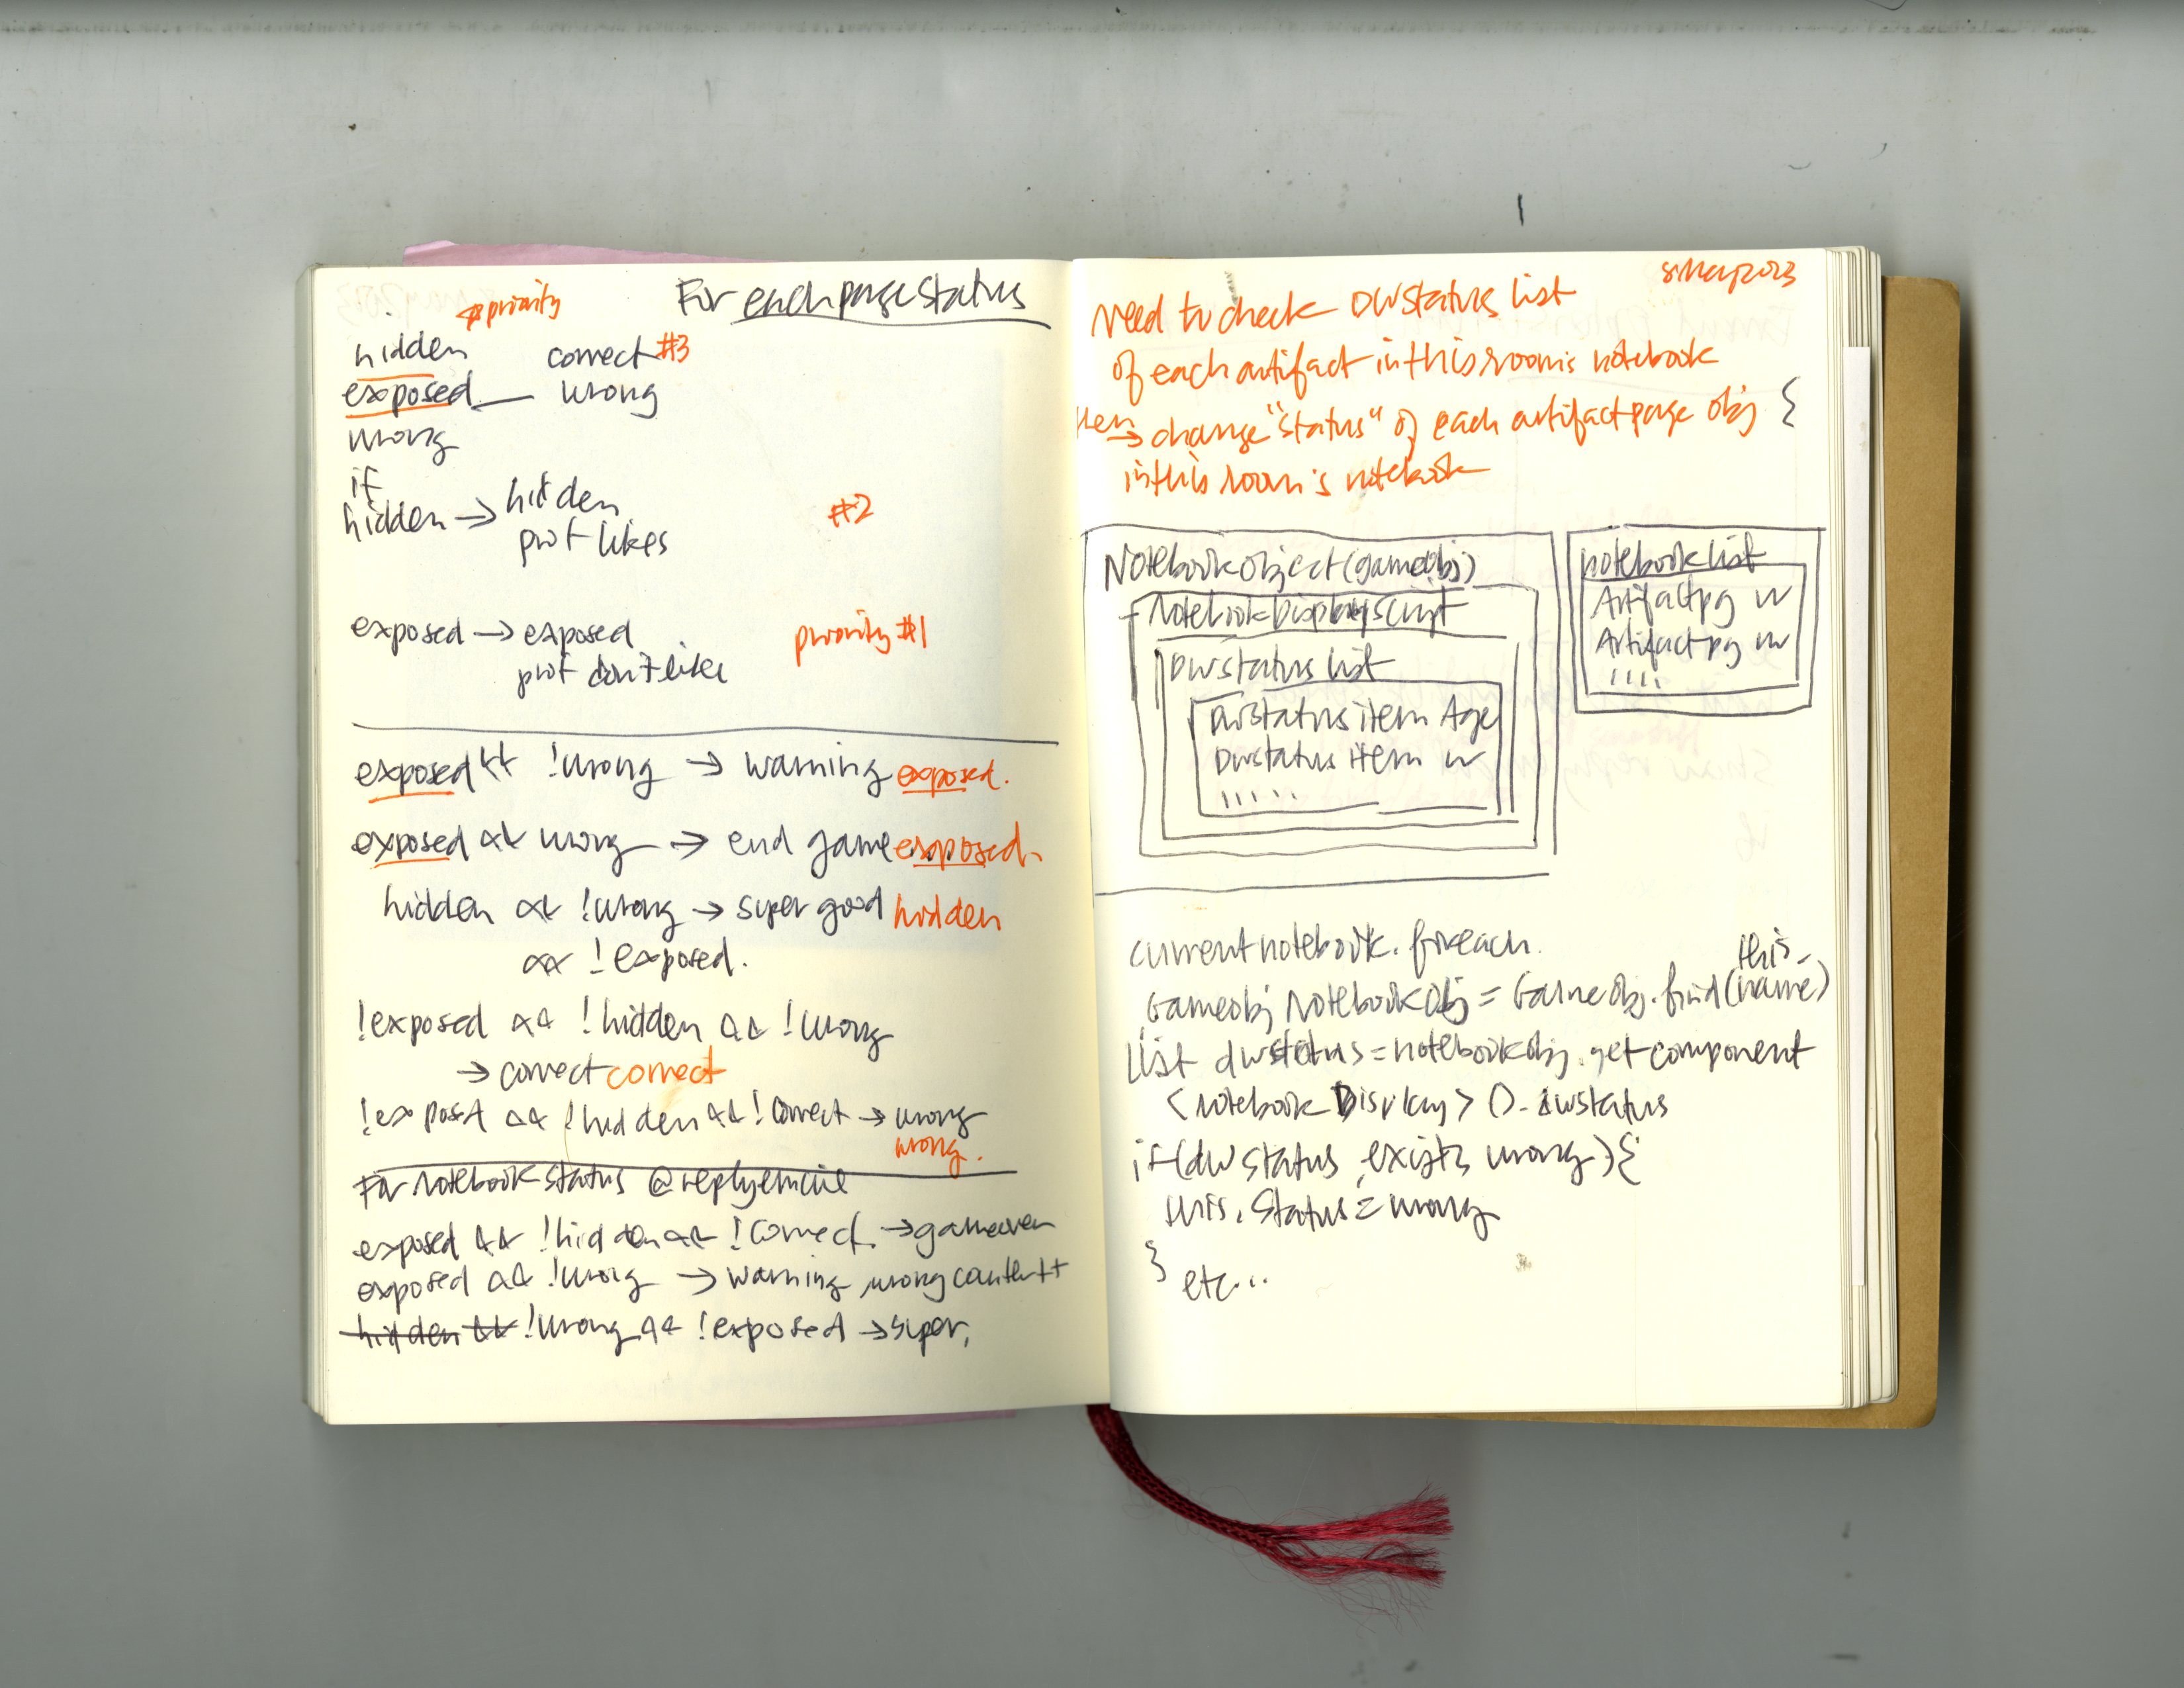 For each page status
priority
hidden correct #3
exposed wrong
wrong
if
hidden → hidden #2
prof likes
exposed → exposed priority #1
prof don't like
exposed && !wrong → warning exposed.
exposed && wrong → end game exposed.
hidden && !wrong → super good hidden
&& !exposed.
!exposed && !hidden && !wrong
→ correct correct
!exposed && !hidden && !correct → wrong
wrong.
For notebook status @replyemcie
exposed && !hidden && !correct → gameover
exposed && !wrong → warning wrong
hidden && !wrong && !exposed → super,
8 May 2023
Need to check DWstatus list
of each artifact in this room's notebook
then → change "status" of each artifact page obj {
in this room's notebook
Notebook object (gameobj)
Notebook Display script
DWstatus list
DWstatus item Age
DWstatus item
.....
notebook list
Artifact pg
Artifact pg
....
currentnotebook.foreach.
this.
Gameobj NotebookObj = GameObj.find(name)
List dwstatus = notebookobj.getcomponent
<notebook Display>().dwstatus
if(dwstatus exists wrong){
this.status = wrong
}
etc...